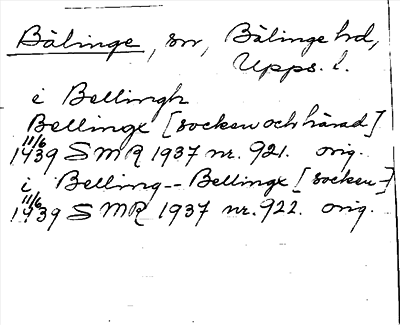 Bälinge, sn, Bälinge hd,
Upps. l.
i Bellingh
Bellinge [socken och härad]
11/6 1439 SMR 1937 nr. 921. orig.
i Belling--Bellinge [socken-]
11/6 1439 SMR 1937 nr. 922. orig.